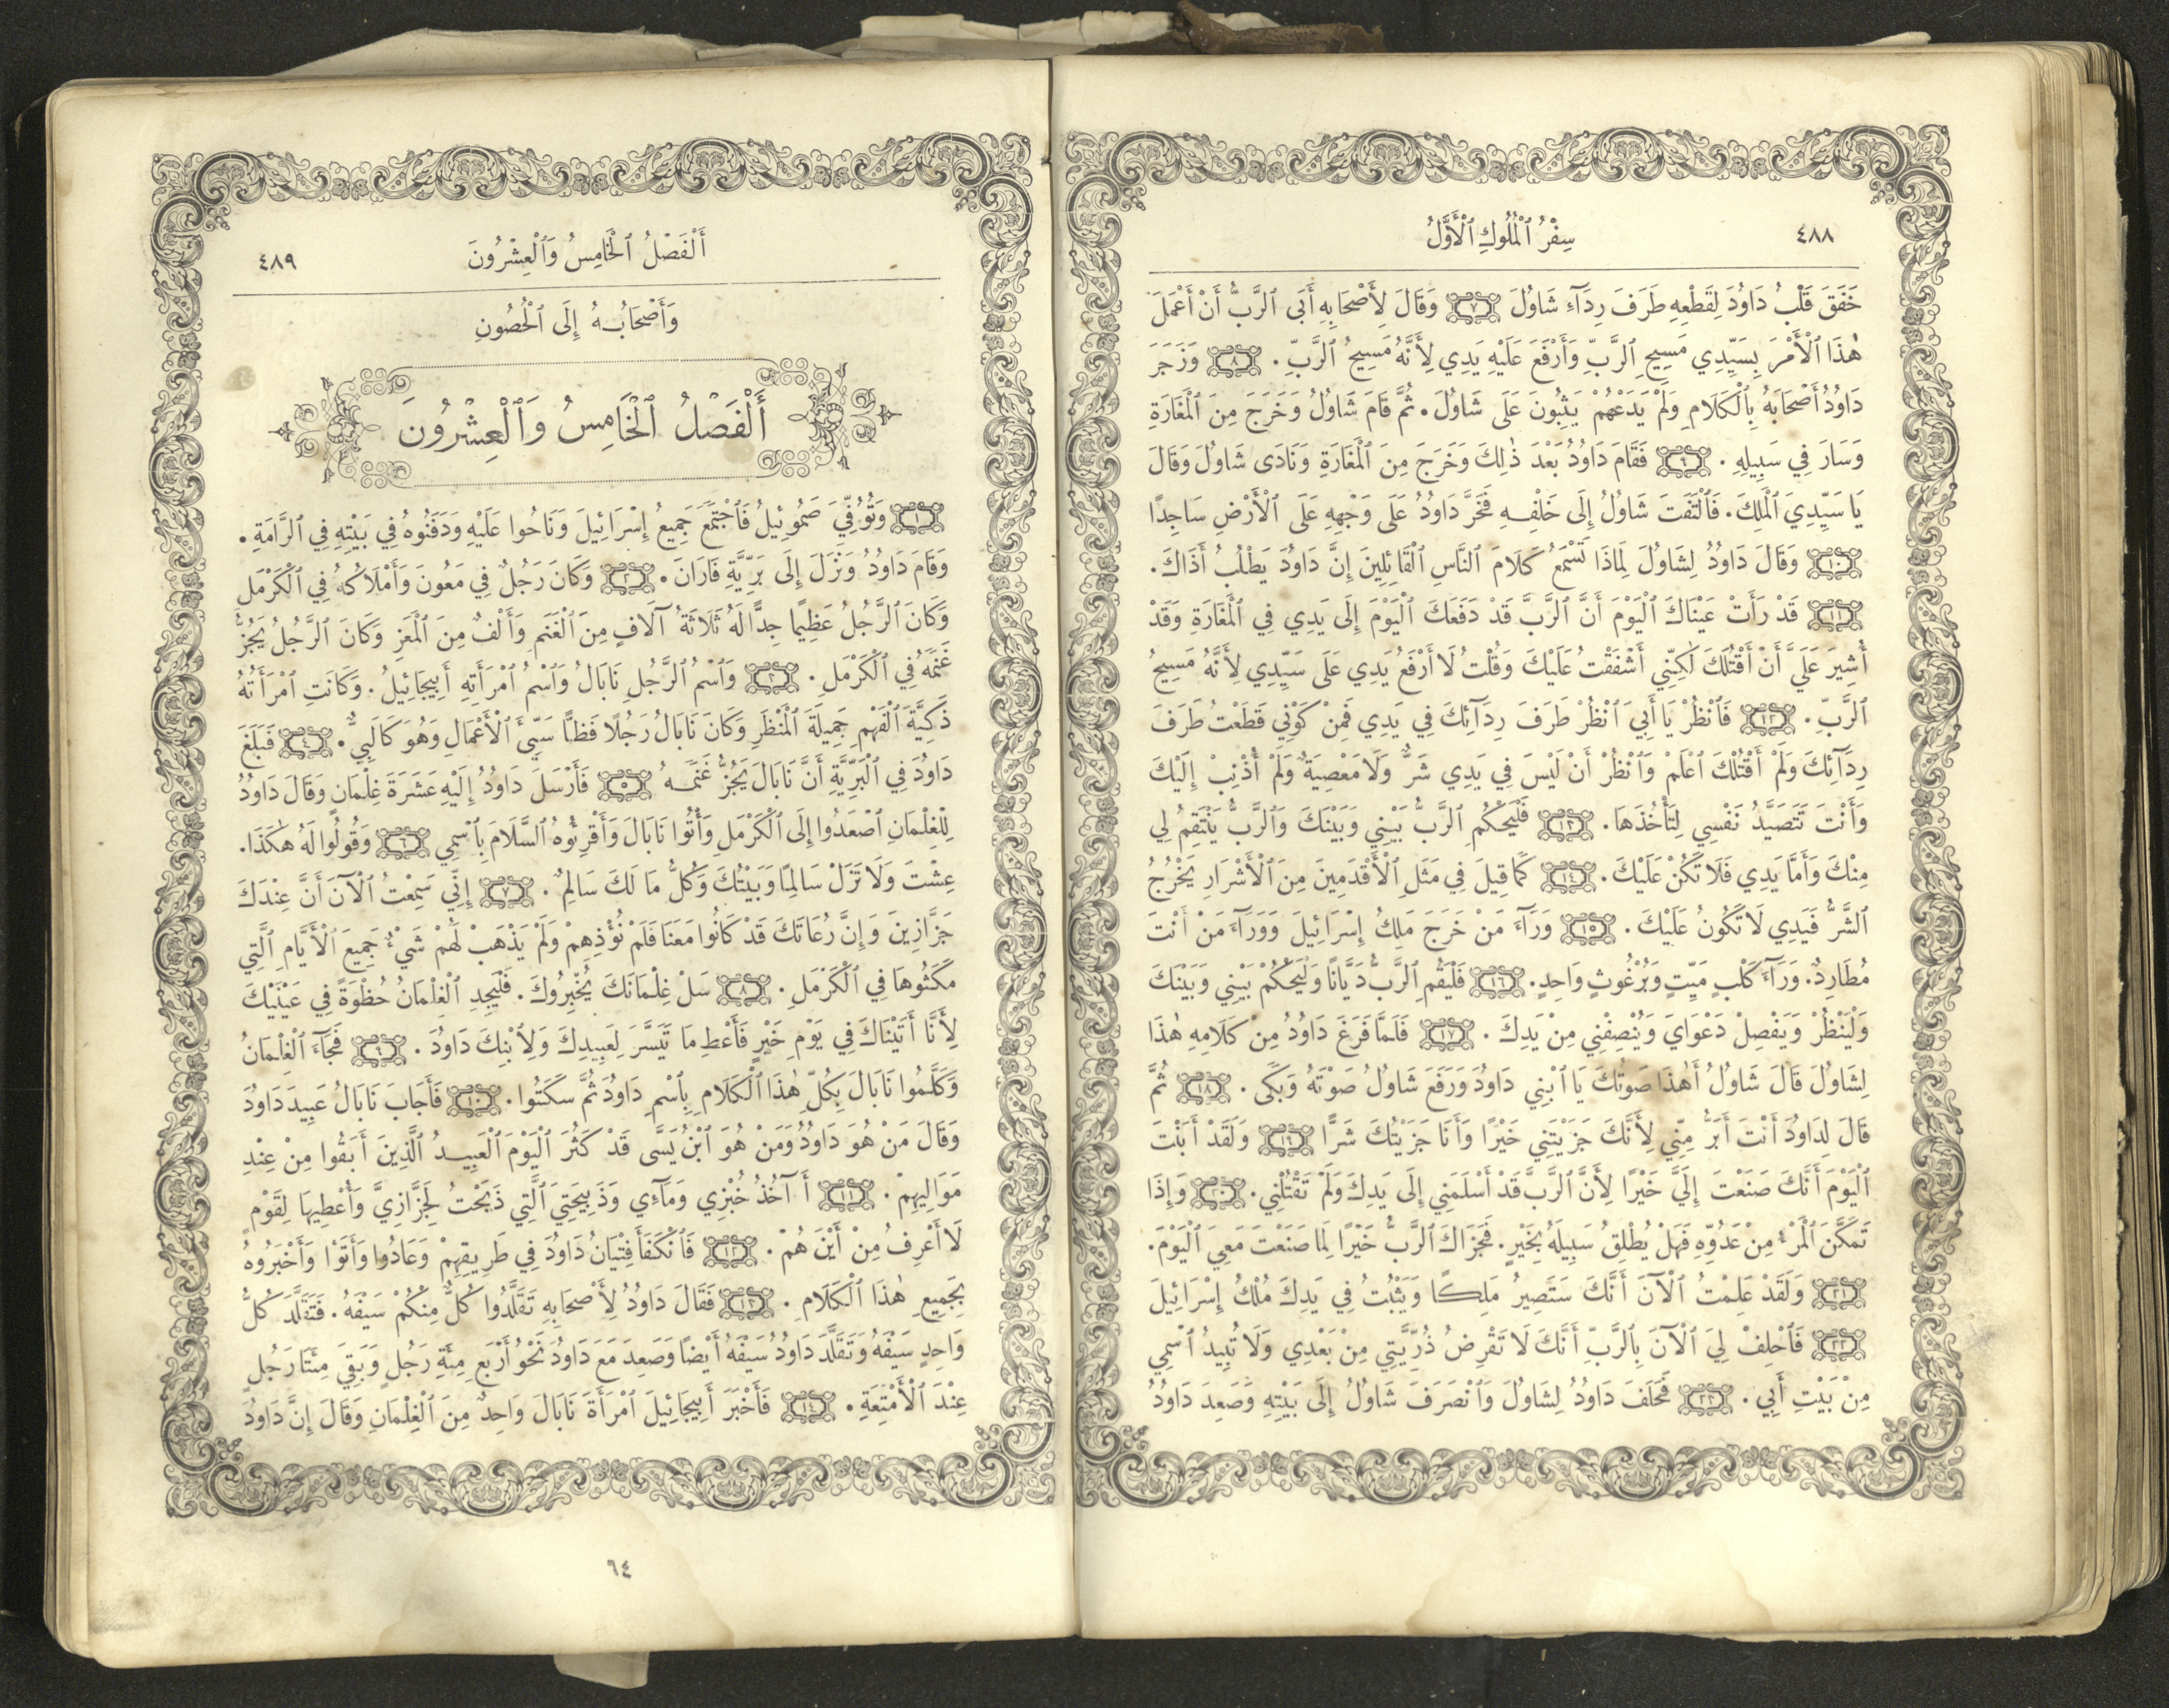 ٤٨٨
سِفْرُ ٱلْمُلُوكِ ٱلْأَوَّلُ
خَفَقَ قَلْبُ دَاوُدَ لِقَطْعِهِ طَرَفَ رِدَآءِ شَاوُلَ ٧ وَقَالَ لِأَصْحَابِهِ أَبَى ٱلرَّبُّ أَنْ أَعْمَلَ
هٰذَا ٱلْأَمْرَ بِسَيِّدِي مَسِيحِ ٱلرَّبِّ وَأَرْفَعَ عَلَيْهِ يَدِي لِأَنَّهُ مَسِيحُ ٱلرَّبِّ. ٨ وَزَجَرَ
دَاوُدُ أَصْحَابَهُ بِٱلْكَلَامِ وَلَمْ يَدَعْهُمْ يَثِبُونَ عَلَى شَاوُلَ. ثُمَّ قَامَ شَاوُلُ وَخَرَجَ مِنَ ٱلْمَغَارَةِ
وَسَارَ فِي سَبِيلِهِ. ٩ فَقَامَ دَاوُدُ بَعْدَ ذٰلِكَ وَخَرَجَ مِنَ ٱلْمَغَارَةِ وَنَادَى شَاوُلَ وَقَالَ
يَا سَيِّدِيَ ٱلْمَلِكَ. فَٱلْتَفَتَ شَاوُلُ إِلَى خَلْفِهِ فَخَرَّ دَاوُدُ عَلَى وَجْهِهِ عَلَى ٱلْأَرْضِ سَاجِدًا
١٠ وَقَالَ دَاوُدُ لِشَاوُلَ لِمَاذَا تَسْمَعُ كَلَامَ ٱلنَّاسِ ٱلْقَائِلِينَ إِنَّ دَاوُدَ يَطْلُبُ أَذَاكَ.
١١ قَدْ رَأَتْ عَيْنَاكَ ٱلْيَوْمَ أَنَّ ٱلرَّبَّ قَدْ دَفَعَكَ ٱلْيَوْمَ إِلَى يَدِي فِي ٱلْمَغَارَةِ وَقَدْ
أُشِيرَ عَلَيَّ أَنْ أَقْتُلَكَ لٰكِنِّي أَشْفَقْتُ عَلَيْكَ وَقُلْتُ لَا أَرْفَعُ يَدِي عَلَى سَيِّدِي لِأَنَّهُ مَسِيحُ
ٱلرَّبِّ. ١٢ فَٱنْظُرْ يَا أَبِيَ ٱنْظُرْ طَرَفَ رِدَآئِكَ فِي يَدِي فَمِنْ كَوْنِي قَطَعْتُ طَرَفَ
رِدَآئِكَ وَلَمْ أَقْتُلْكَ ٱعْلَمْ وَٱنْظُرْ أَنْ لَيْسَ فِي يَدِي شَرٌّ وَلَا مَعْصِيَةٌ وَلَمْ أُذْنِبْ إِلَيْكَ
وَأَنْتَ تَتَصَيَّدُ نَفْسِي لِتَأْخُذَهَا. ١٣ فَلْيَحْكُمِ ٱلرَّبُّ بَيْنِي وَبَيْنَكَ وَٱلرَّبُّ يَنْتَقِمُ لِي
مِنْكَ وَأَمَّا يَدِي فَلَا تَكُنْ عَلَيْكَ. ١٤ كَمَا قِيلَ فِي مَثَلِ ٱلْأَقْدَمِينَ مِنَ ٱلْأَشْرَارِ يَخْرُجُ
ٱلشَّرُّ فَيَدِي لَا تَكُونُ عَلَيْكَ. ١٥ وَرَآءَ مَنْ خَرَجَ مَلِكُ إِسْرَائِيلَ وَوَرَآءَ مَنْ أَنْتَ
مُطَارِدٌ. وَرَآءَ كَلْبٍ مَيِّتٍ وَبُرْغُوثٍ وَاحِدٍ. ١٦ فَلْيَقُمِ ٱلرَّبُّ دَيَّانًا وَلْيَحْكُمْ بَيْنِي وَبَيْنَكَ
وَلْيَنْظُرْ وَيَفْصِلْ دَعْوَايَ وَيُنْصِفْنِي مِنْ يَدِكَ. ١٧ فَلَمَّا فَرَغَ دَاوُدُ مِنْ كَلَامِهِ هٰذَا
لِشَاوُلَ قَالَ شَاوُلُ أَهٰذَا صَوْتُكَ يَا ٱبْنِي دَاوُدَ وَرَفَعَ شَاوُلُ صَوْتَهُ وَبَكَى. ١٨ ثُمَّ
قَالَ لِدَاوُدَ أَنْتَ أَبَرُّ مِنِّي لِأَنَّكَ جَزَيْتَنِي خَيْرًا وَأَنَا جَزَيْتُكَ شَرًّا ١٩ وَلَقَدْ أَبَنْتَ
ٱلْيَوْمَ أَنَّكَ صَنَعْتَ إِلَيَّ خَيْرًا لِأَنَّ ٱلرَّبَّ قَدْ أَسْلَمَنِي إِلَى يَدِكَ وَلَمْ تَقْتُلْنِي. ٢٠ وَإِذَا
تَمَكَّنَ ٱلْمَرْءُ مِنْ عَدُوِّهِ فَهَلْ يُطْلِقُ سَبِيلَهُ بِخَيْرٍ. فَجَزَاكَ ٱلرَّبُّ خَيْرًا لِمَا صَنَعْتَ مَعِيَ ٱلْيَوْمَ.
٢١ وَلَقَدْ عَلِمْتُ ٱلْآنَ أَنَّكَ سَتَصِيرُ مَلِكًا وَيَثْبُتُ فِي يَدِكَ مُلْكُ إِسْرَائِيلَ
٢٢ فَٱحْلِفْ لِيَ ٱلْآنَ بِٱلرَّبِّ أَنَّكَ لَا تَقْرِضُ ذُرِّيَّتِي مِنْ بَعْدِي وَلَا تُبِيدُ ٱسْمِي
مِنْ بَيْتِ أَبِي. ٢٣ فَحَلَفَ دَاوُدُ لِشَاوُلَ وَٱنْصَرَفَ شَاوُلُ إِلَى بَيْتِهِ وَصَعِدَ دَاوُدُ
أَلْفَصْلُ ٱلْخَامِسُ وَٱلْعِشْرُونَ
٤٨٩
وَأَصْحَابُهُ إِلَى ٱلْحُصُونِ
أَلْفَصْلُ ٱلْخَامِسُ وَٱلْعِشْرُونَ
١ وَتُوُفِّيَ صَمُوئِيلُ فَٱجْتَمَعَ جَمِيعُ إِسْرَائِيلَ وَنَاحُوا عَلَيْهِ وَدَفَنُوهُ فِي بَيْتِهِ فِي ٱلرَّامَةِ.
وَقَامَ دَاوُدُ وَنَزَلَ إِلَى بَرِّيَّةِ فَارَانَ. ٢ وَكَانَ رَجُلٌ فِي مَعُونَ وَأَمْلَاكُهُ فِي ٱلْكَرْمَلِ
وَكَانَ ٱلرَّجُلُ عَظِيمًا جِدًّا لَهُ ثَلَاثَةُ آلَافٍ مِنَ ٱلْغَنَمِ وَأَلْفٌ مِنَ ٱلْمَعَزِ وَكَانَ ٱلرَّجُلُ يَجُزُّ
غَنَمَهُ فِي ٱلْكَرْمَلِ. ٣ وَٱسْمُ ٱلرَّجُلِ نَابَالُ وَٱسْمُ ٱمْرَأَتِهِ أَبِيجَائِيلُ. وَكَانَتِ ٱمْرَأَتُهُ
ذَكِيَّةَ ٱلْفَهْمِ جَمِيلَةَ ٱلْمَنْظَرِ وَكَانَ نَابَالُ رَجُلًا فَظًّا سَيِّئَ ٱلْأَعْمَالِ وَهُوَ كَالَبِيٌّ. ٤ فَبَلَغَ
دَاوُدَ فِي ٱلْبَرِّيَّةِ أَنَّ نَابَالَ يَجُزُّ غَنَمَهُ ٥ فَأَرْسَلَ دَاوُدُ إِلَيْهِ عَشَرَةَ غِلْمَانٍ وَقَالَ دَاوُدُ
لِلْغِلْمَانِ ٱصْعَدُوا إِلَى ٱلْكَرْمَلِ وَأْتُوا نَابَالَ وَأَقْرِئُوهُ ٱلسَّلَامَ بِٱسْمِي ٦ وَقُولُوا لَهُ هٰكَذَا.
عِشْتَ وَلَا تَزَلْ سَالِمًا وَبَيْتُكَ وَكُلُّ مَا لَكَ سَالِمٌ. ٧ إِنِّي سَمِعْتُ ٱلْآنَ أَنَّ عِنْدَكَ
جَزَّازِينَ وَإِنَّ رُعَاتَكَ قَدْ كَانُوا مَعَنَا فَلَمْ نُؤْذِهِمْ وَلَمْ يَذْهَبْ لَهُمْ شَيْءٌ جَمِيعَ ٱلْأَيَّامِ ٱلَّتِي
مَكَثُوهَا فِي ٱلْكَرْمَلِ. ٨ سَلْ غِلْمَانَكَ يُخْبِرُوكَ. فَلْيَجِدِ ٱلْغِلْمَانُ حُظْوَةً فِي عَيْنَيْكَ
لِأَنَّا أَتَيْنَاكَ فِي يَوْمِ خَيْرٍ فَأَعْطِ مَا تَيَسَّرَ لِعَبِيدِكَ وَلِٱبْنِكَ دَاوُدَ. ٩ فَجَآءَ ٱلْغِلْمَانُ
وَكَلَّمُوا نَابَالَ بِكُلِّ هٰذَا ٱلْكَلَامِ بِٱسْمِ دَاوُدَ ثُمَّ سَكَتُوا. ١٠ فَأَجَابَ نَابَالُ عَبِيدَ دَاوُدَ
وَقَالَ مَنْ هُوَ دَاوُدُ وَمَنْ هُوَ ٱبْنُ يَسَّى قَدْ كَثُرَ ٱلْيَوْمَ ٱلْعَبِيدُ ٱلَّذِينَ أَبَقُوا مِنْ عِنْدِ
مَوَالِيهِمْ. ١١ أَ آخُذُ خُبْزِي وَمَآءِي وَذَبِيحَتِيَ ٱلَّتِي ذَبَحْتُ لِجَزَّازِيَّ وَأُعْطِيهَا لِقَوْمٍ
لَا أَعْرِفُ مِنْ أَيْنَ هُمْ. ١٢ فَٱنْكَفَأَ فِتْيَانُ دَاوُدَ فِي طَرِيقِهِمْ وَعَادُوا وَأَتَوْا وَأَخْبَرُوهُ
بِجَمِيعِ هٰذَا ٱلْكَلَامِ. ١٣ فَقَالَ دَاوُدُ لِأَصْحَابِهِ تَقَلَّدُوا كُلٌّ مِنْكُمْ سَيْفَهُ. فَتَقَلَّدَ كُلُّ
وَاحِدٍ سَيْفَهُ وَتَقَلَّدَ دَاوُدُ سَيْفَهُ أَيْضًا وَصَعِدَ مَعَ دَاوُدَ نَحْوُ أَرْبَعِ مِئَةِ رَجُلٍ وَبَقِيَ مِئَتَا رَجُلٍ
عِنْدَ ٱلْأَمْتِعَةِ. ١٤ فَأَخْبَرَ أَبِيجَائِيلَ ٱمْرَأَةَ نَابَالَ وَاحِدٌ مِنَ ٱلْغِلْمَانِ وَقَالَ إِنَّ دَاوُدَ
٦٤